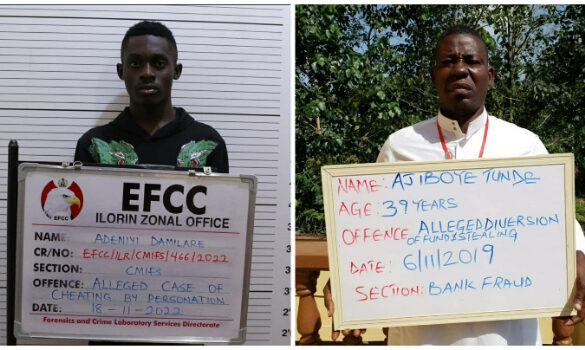 EFCC
EFCC
ILORIN ZONAL OFFICE
NAME: ADENIYI DAMILARE
CR/NO: EFCC/ILR/CMIFS/466/2022
SECTION: CMIFS
OFFENCE: ALLEGED CASE OF
CHEATING BY PERSONATION
DATE: 18-11-2022
Forensics and Crime Laboratory Services Directorate
NAME: AJIBOYE TUNDE
AGE: 39 YEARS
OFFENCE: ALLEGED DIVERSION
OF FUND/STEALING
DATE: 6/11/2019
SECTION: BANK FRAUD